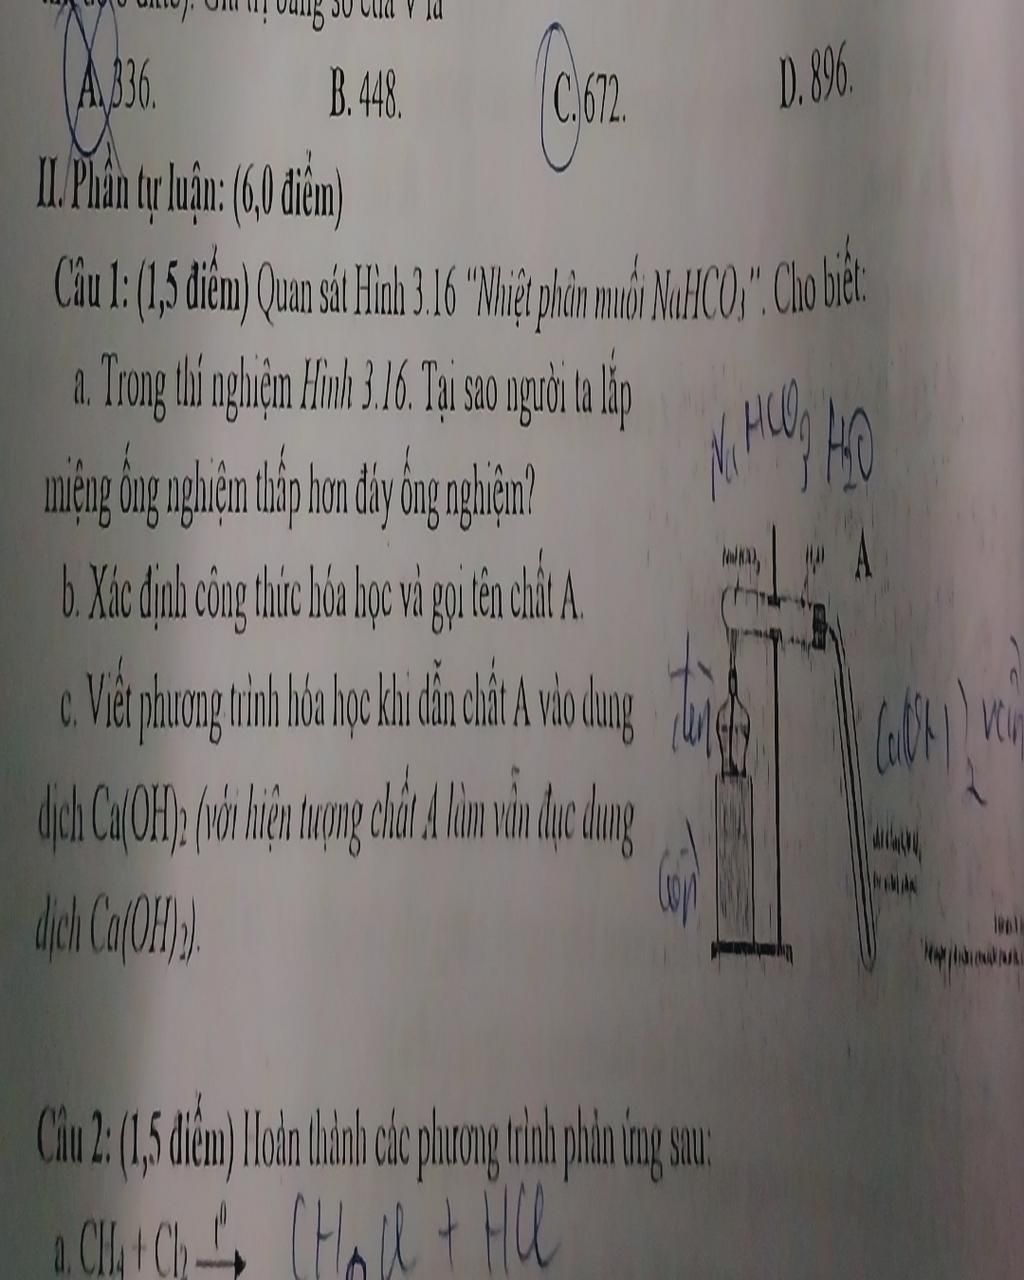 số của V là
A. 336. B. 448. C. 672. D. 896.
II. Phần tự luận: (6,0 điểm)
Câu 1: (1,5 điểm) Quan sát Hình 3.16 "Nhiệt phân muối NaHCO₃". Cho biết:
a. Trong thí nghiệm Hình 3.16. Tại sao người ta lắp
miệng ống nghiệm thấp hơn đáy ống nghiệm?
NaHCO₃ H₂O
A
b. Xác định công thức hóa học và gọi tên chất A.
c. Viết phương trình hóa học khi dẫn chất A vào dung
dịch Ca(OH)₂ (với hiện tượng chất A làm vẩn đục dung
dịch Ca(OH)₂).
đèn
cồn
Ca(OH)₂
Câu 2: (1,5 điểm) Hoàn thành các phương trình phản ứng sau:
a. CH₄ + Cl₂ t⁰→ CH₃Cl + HCl